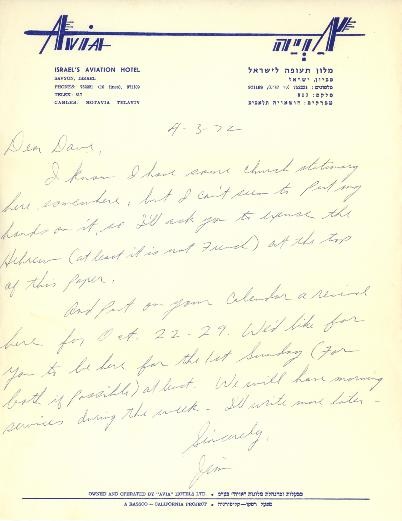 Avia
אויה
ISRAEL'S AVIATION HOTEL
מלון תעופה לישראל
SAVYON, ISRAEL
סביון, ישראל
CABLES: HOTAVIA TELAVIV
4-3-72
Dear Dave,
I know I have some church stationery
here somewhere, but I can't seem to put my
hands on it, so I'll ask you to excuse the
Hebrew (at least it is not French) at the top
of this paper.
And put on your calendar a revival
here for Oct. 22-29. We'd like for
you to be here for the 1st Sunday (For
both if possible) at least. We will have morning
services during the week - I'll write more later -
Sincerely,
Jim
OWNED AND OPERATED BY "AVIA" HOTELS LTD.
A RASSCO - CALIFORNIA PROJECT